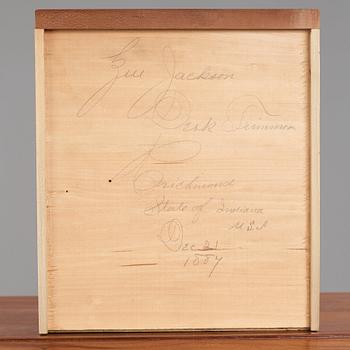 Zue Jackson
Desk Trimmer
Richmond
State of Indiana
U.S.A
Dec 21
1887